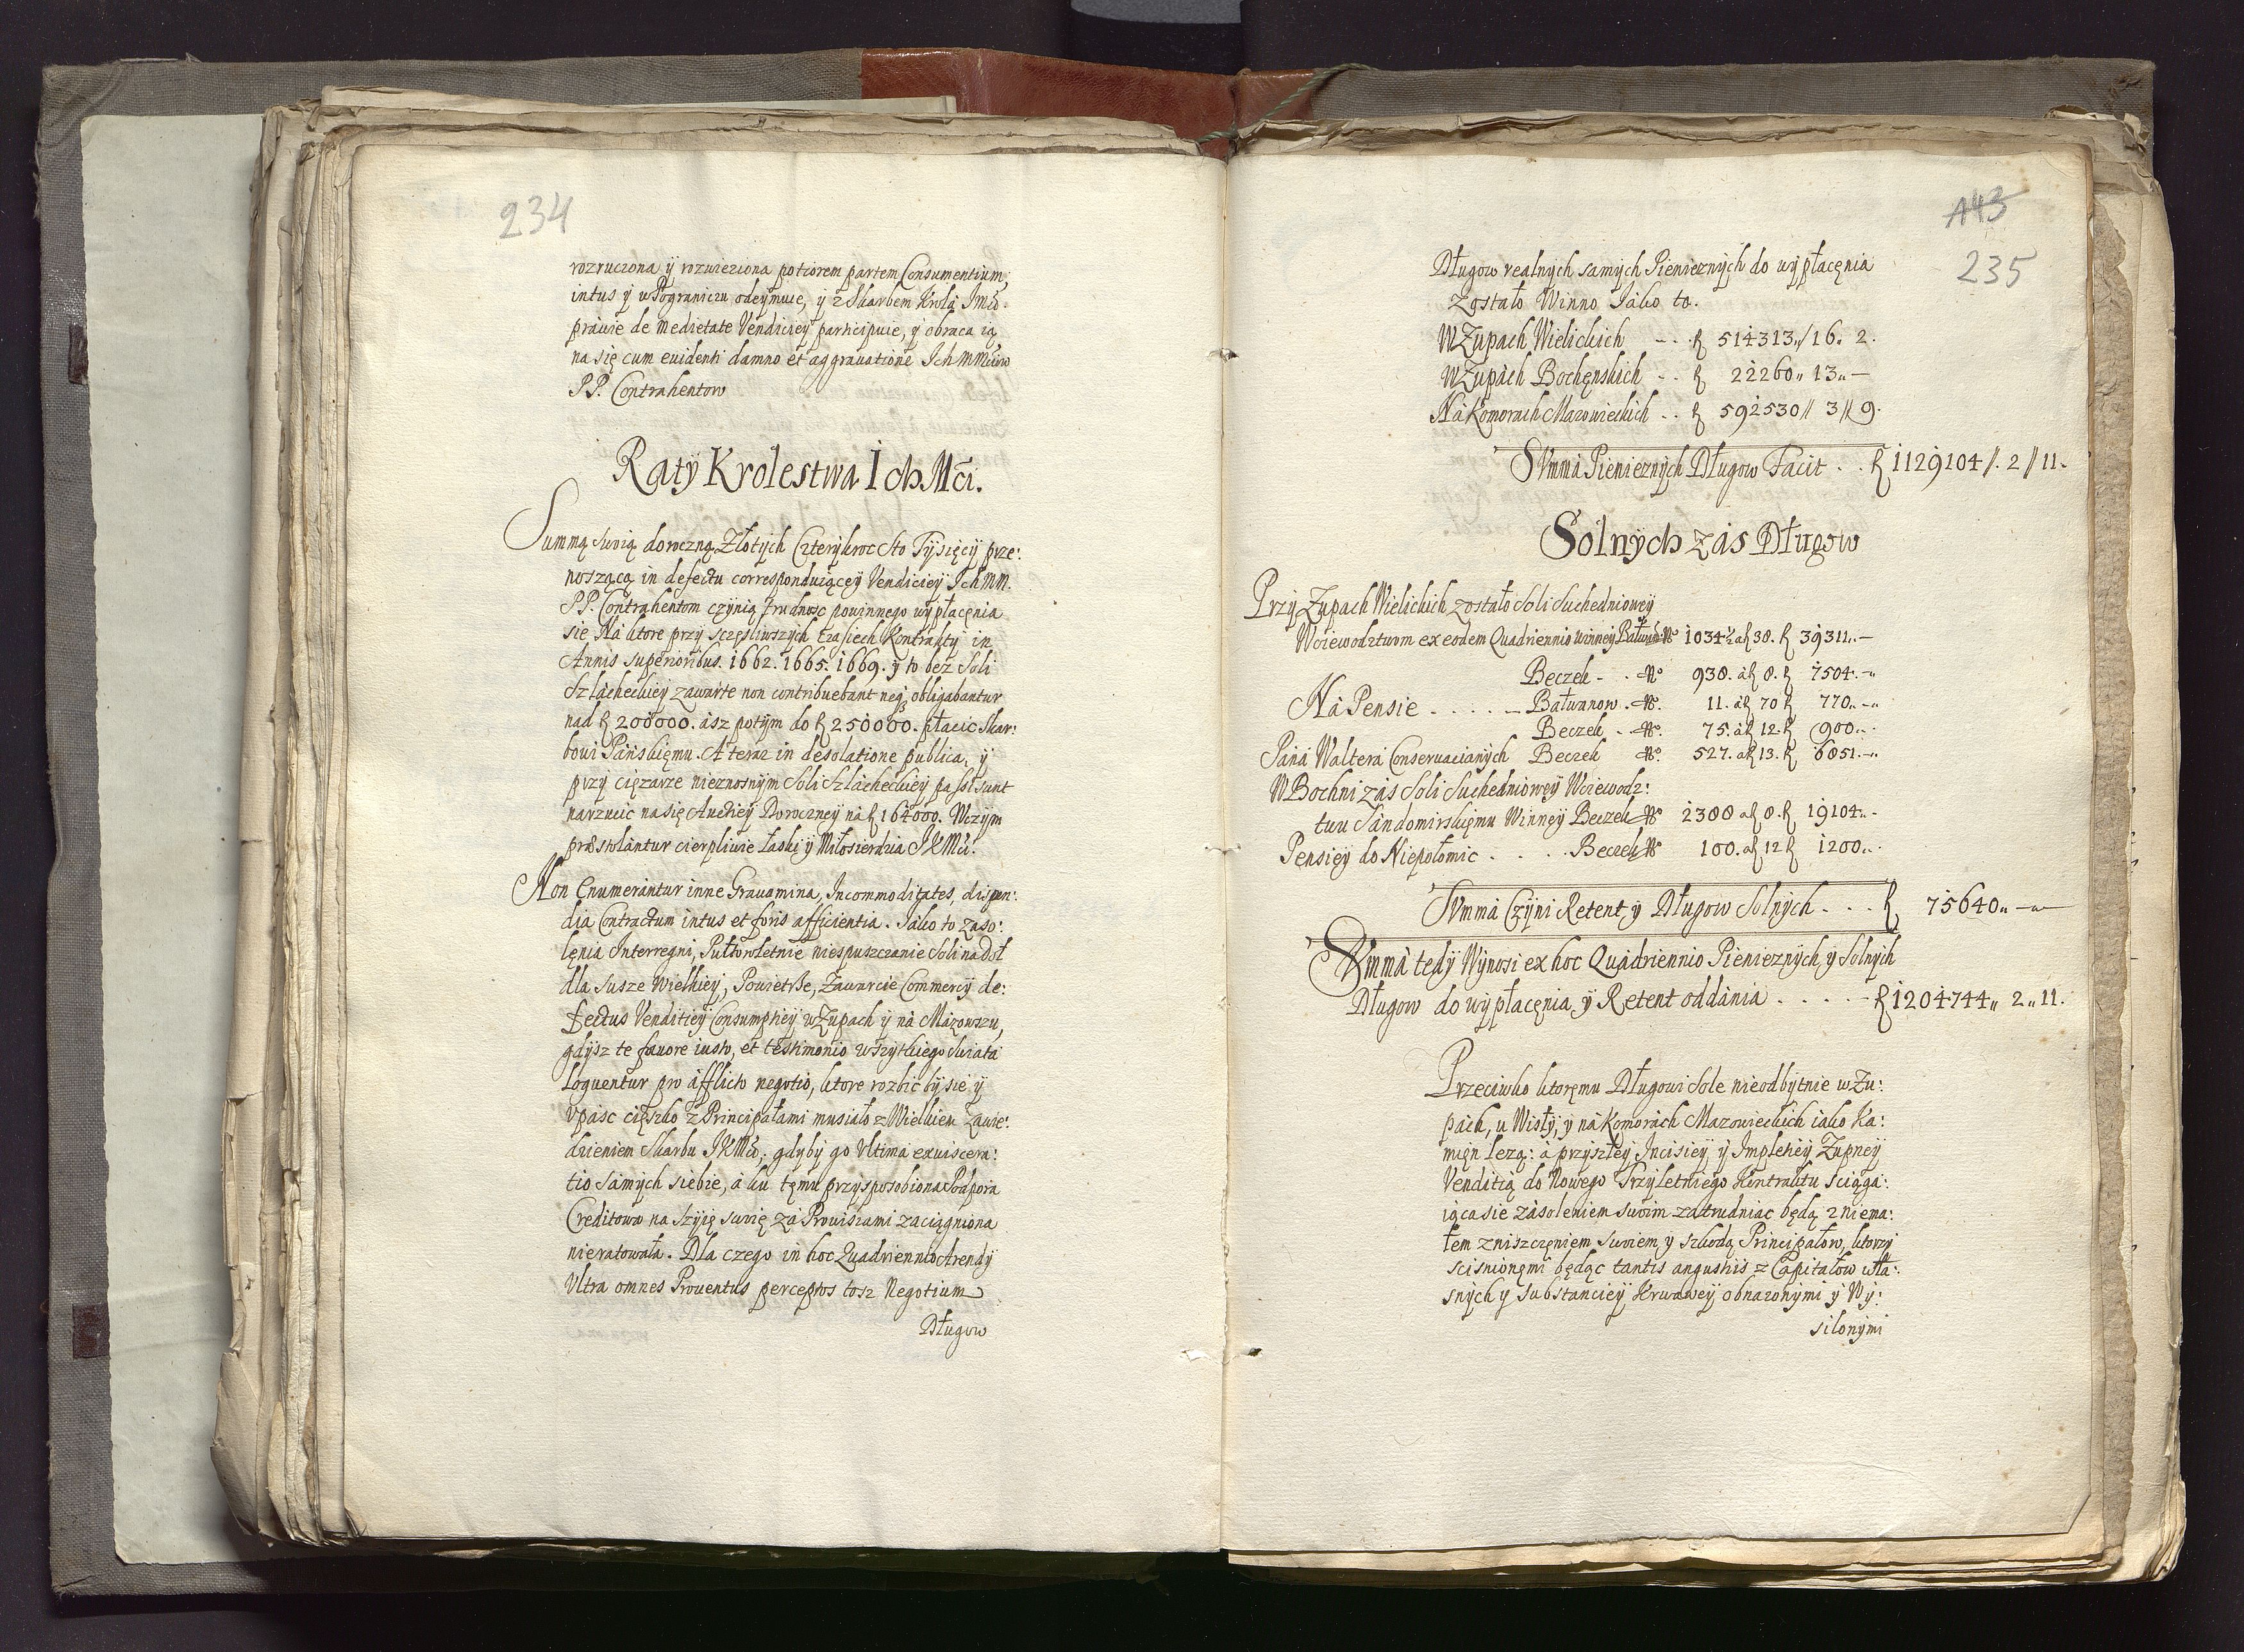 234
rozruczona ÿ rozwieziona potiorem partem Consumentium,
intus ÿ w Pograniczu odeÿmuie, ÿ z Skarbem Krola Jmći
prawie de medietate Venditieÿ participuie, ÿ obraca ią
na się cum euidenti damno et aggrauatione Ich Mmćiow
PP. Contrahentow
Ratÿ Krolestwa Ich Mći.
Summą swoią doroczną Złotÿch Czterÿkroc Sto Tÿsięcÿ prze:
noszącą in defectu correspondującÿ Venditieÿ Ich MM.
PP. Contrahentom czÿnią trudnosc powinnego wÿpłacęnia
się Na ktore przÿ sczęsliwszÿch czasiech Kontraktÿ in
Annis superioribus. 1662. 1665. 1669. ÿ to bez Soli
Szlacheckieÿ zawarte non contribuebant neq3 obligabantur
nad ƒ 200000. asz potÿm do ƒ 250000. płacic Skar:
bowi Pańskięmu. A teraz in desolatione publica, ÿ
przÿ cięzarze nieznosnÿm Soli Szlacheckieÿ passi sunt
narzucic na się Auctieÿ Dorocznei na ƒ 164000. W czÿm
præstolantur cierpliwie Łaski ÿ Miłosierdzia JKMći.
Non Enumerantur inne Grauamina, Incommoditates, dispen:
dia Contractum intus et foris afficientia. Jako to zaso:
lęnia Interregni, Pułtoraletnie niespuszczanie Soli na Doł
dla Susze Wielkieÿ, Powietrße, Zawarcie Commercÿ de:
fectus Venditieÿ Consumptieÿ w Zupach ÿ na Mazowszu,
gdÿsz te fauore iusto, et testimonio wszÿtkiego Swiata
loquentur pro afflicto negotio, ktore rozbic bÿ się ÿ
vpasc cięszko z Principałami musiało z Wielkiem Zawie:
dzieniem Skarbu JKMći, gdybÿ go Vltima euiscera:
tio samÿch siebie, a ku tęmu przysposobiona Podpora
Creditowa na szÿię swoię za Prouisiami zaciągniona
nieratowała. Dla czego in hoc Quadriennio Arendÿ
Vltra omnes Prouentus perceptos tosz Negotium
Długow
143
235
Długow realnÿch samÿch Pienieznÿch do wÿpłacęnia
Zostało Winno Jako to.
W Zupach Wielickich - - . ƒ 514313„/ 16. 2.
W Zupach Bochęnskich - . ƒ 22260„ 13„ —
Na Komorach Mazowieckich . . ƒ 592530 // 3 // 9.
SVmma Pienieznÿch Długow Facit . . ƒ 1129104 //. 2 // 11.
Solnÿch zas Długow
Przÿ Zupach Wielickich zostało Soli Suchedniowÿ
Woiewodztwom ex eodem Quadriennio winneÿ Bałwan: No 1034½ aƒ 38. ƒ 39311„ —
Beczek - . No 938. aƒ 8. ƒ 7504. -„
Na Pensie . . . . . - Bałwanow . No. 11. aƒ 70 ƒ 770„ -„
Beczek . No. 75. aƒ 12. ƒ 900„.
Pana Waltera Conseruacianÿch Beczek No. 527. aƒ 13. ƒ 6851. -„
W Bochni zas Soli Suchedniowÿ Woiewodz:
twu Sandomirskięmu Winneÿ Beczek No 2388 aƒ 8. ƒ 19104„ -
Pensieÿ do Niepołomic . . . . Beczek No 100. aƒ 12 ƒ 1200„.
SVmma Czÿni Retent, ÿ Długow Solnÿch . . . ƒ 75640„ —
SVmma tedÿ Wÿnosi ex hoc Quadriennio Pienieznÿch, ÿ Solnÿch
Długow do wÿpłacęnia, ÿ Retent oddania . . . . . - ƒ 1204744„ 2„ 11.
Przeciwko ktoręmu Długowi Sole nieodbÿtnie w Zu:
pach, u Wisłÿ, ÿ na Komorach Mazowieckich iako Ka:
mięn lezą: a przyszłeÿ Incisieÿ ÿ Impletieÿ Zupneÿ
Venditią do Nowego Trzÿletniego Kontraktu sciąga:
iąca się zasoleniem swoim zatrudniac będą z niema:
łem zniszczęniem swoiem, ÿ szkodą Principałow, ktorzÿ
scisnionęmi będąc tantis angustiis z Capitałow wła:
snÿch ÿ Substancieÿ Krwaweÿ obnazonÿmi ÿ Wÿ:
silonÿmi